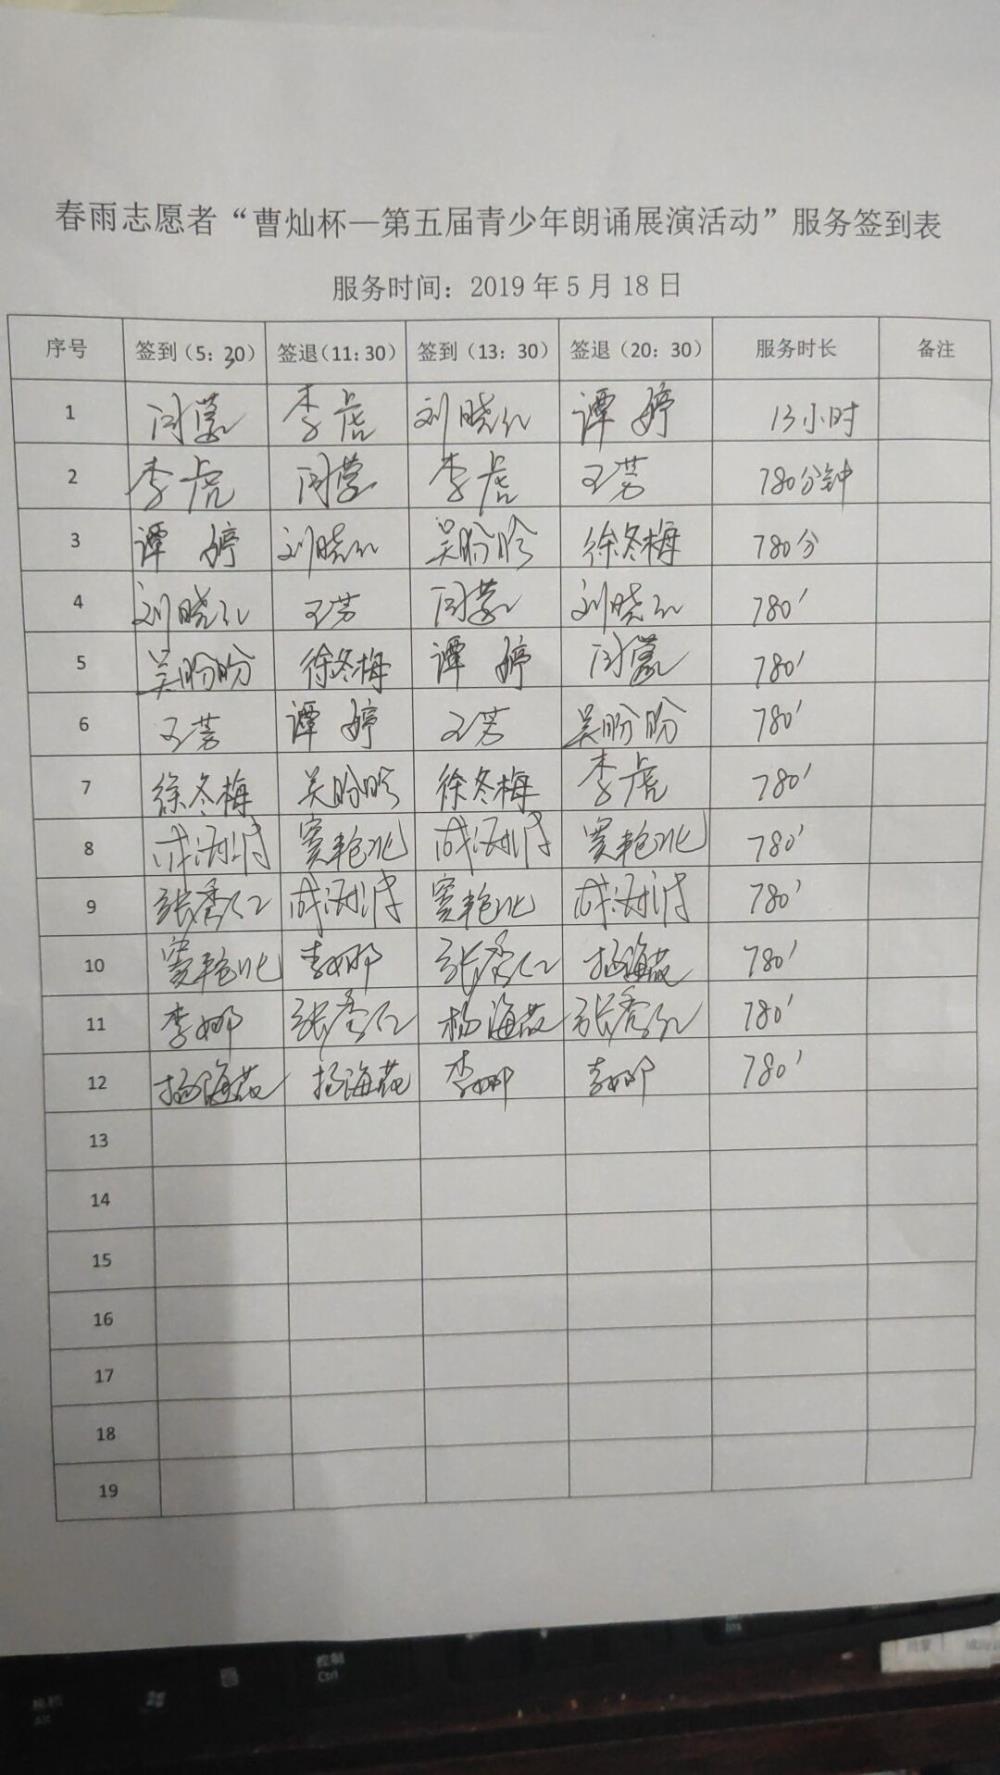 春雨志愿者“曹灿杯—第五届青少年朗诵展演活动”服务签到表
服务时间：2019年5月18日
序号 签到（5：30） 签退（11：30） 签到（13：30） 签退（20：30） 服务时长 备注
1 闫蒙 李虎 刘晓红 谭婷 13小时
2 李虎 闫蒙 李虎 王芳 780分钟
3 谭婷 刘晓红 吴盼盼 徐冬梅 780分
4 刘晓红 王芳 闫蒙 刘晓红 780'
5 吴盼盼 徐冬梅 谭婷 闫蒙 780'
6 王芳 谭婷 王芳 吴盼盼 780'
7 徐冬梅 吴盼盼 徐冬梅 李虎 780'
8 窦艳北 窦艳北 780'
9 张秀红 窦艳北 780'
10 窦艳北 李娜 张秀红 杨海燕 780'
11 李娜 张秀红 杨海燕 张秀红 780'
12 杨海燕 杨海燕 李娜 李娜 780'
13
14
15
16
17
18
19
控制
Ctrl
Alt